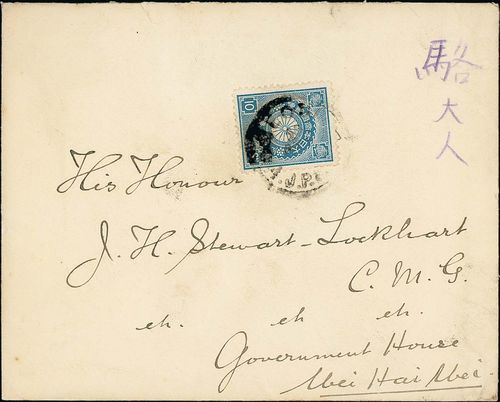 駱
大
人
10
J.P.
His Honour
J. H. Stewart-Lockhart
C. M. G.
etc. etc. etc.
Government House
Wei Hai Wei.